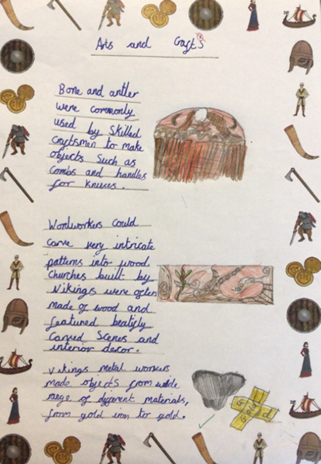 Arts and Crafts
Bone and antler
were commonly
used by skilled
craftsmen to make
objects such as
combs and handles
for knives.
Woodworkers could
carve very intricate
patterns into wood.
Churches built by
Vikings were often
made of wood and
featured
carved scenes and
interior decor.
Vikings metal workers
made objects from wide
range of different materials,
from gold iron to gold.
Gold